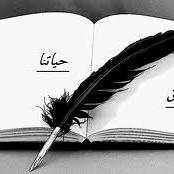 حياتنا